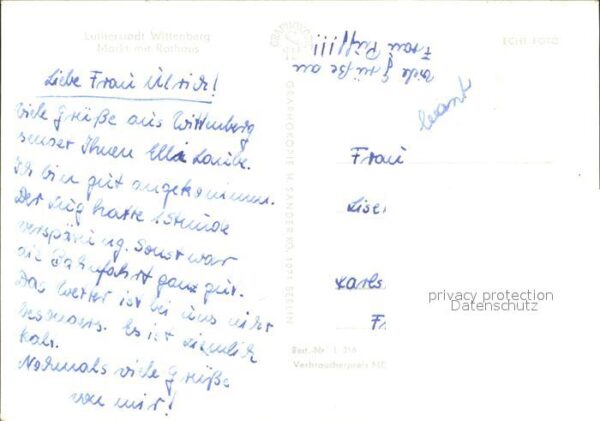 Lutherstadt Wittenberg
Markt mit Rathaus
Liebe Frau Ulrich!
Viele Grüße aus Wittenberg
sendet Ihnen Elli Laube.
Ich bin gut angekommen.
Der Zug hatte 1 Stunde
verspätung. Sonst war
die Bahnfahrt ganz gut.
Das Wetter ist bei uns nicht
besonders. Es ist ziemlich
kalt.
Nochmals viele Grüße
von mir!
GRAPHOKOPIE H. SANDER KG, 1071 BERLIN
viele Grüße an
Frau !!!!
ECHT FOTO
Frau
Lise
Karls
F
privacy protection
Datenschutz
Best.-Nr. L 316
Verbraucherpreis MD